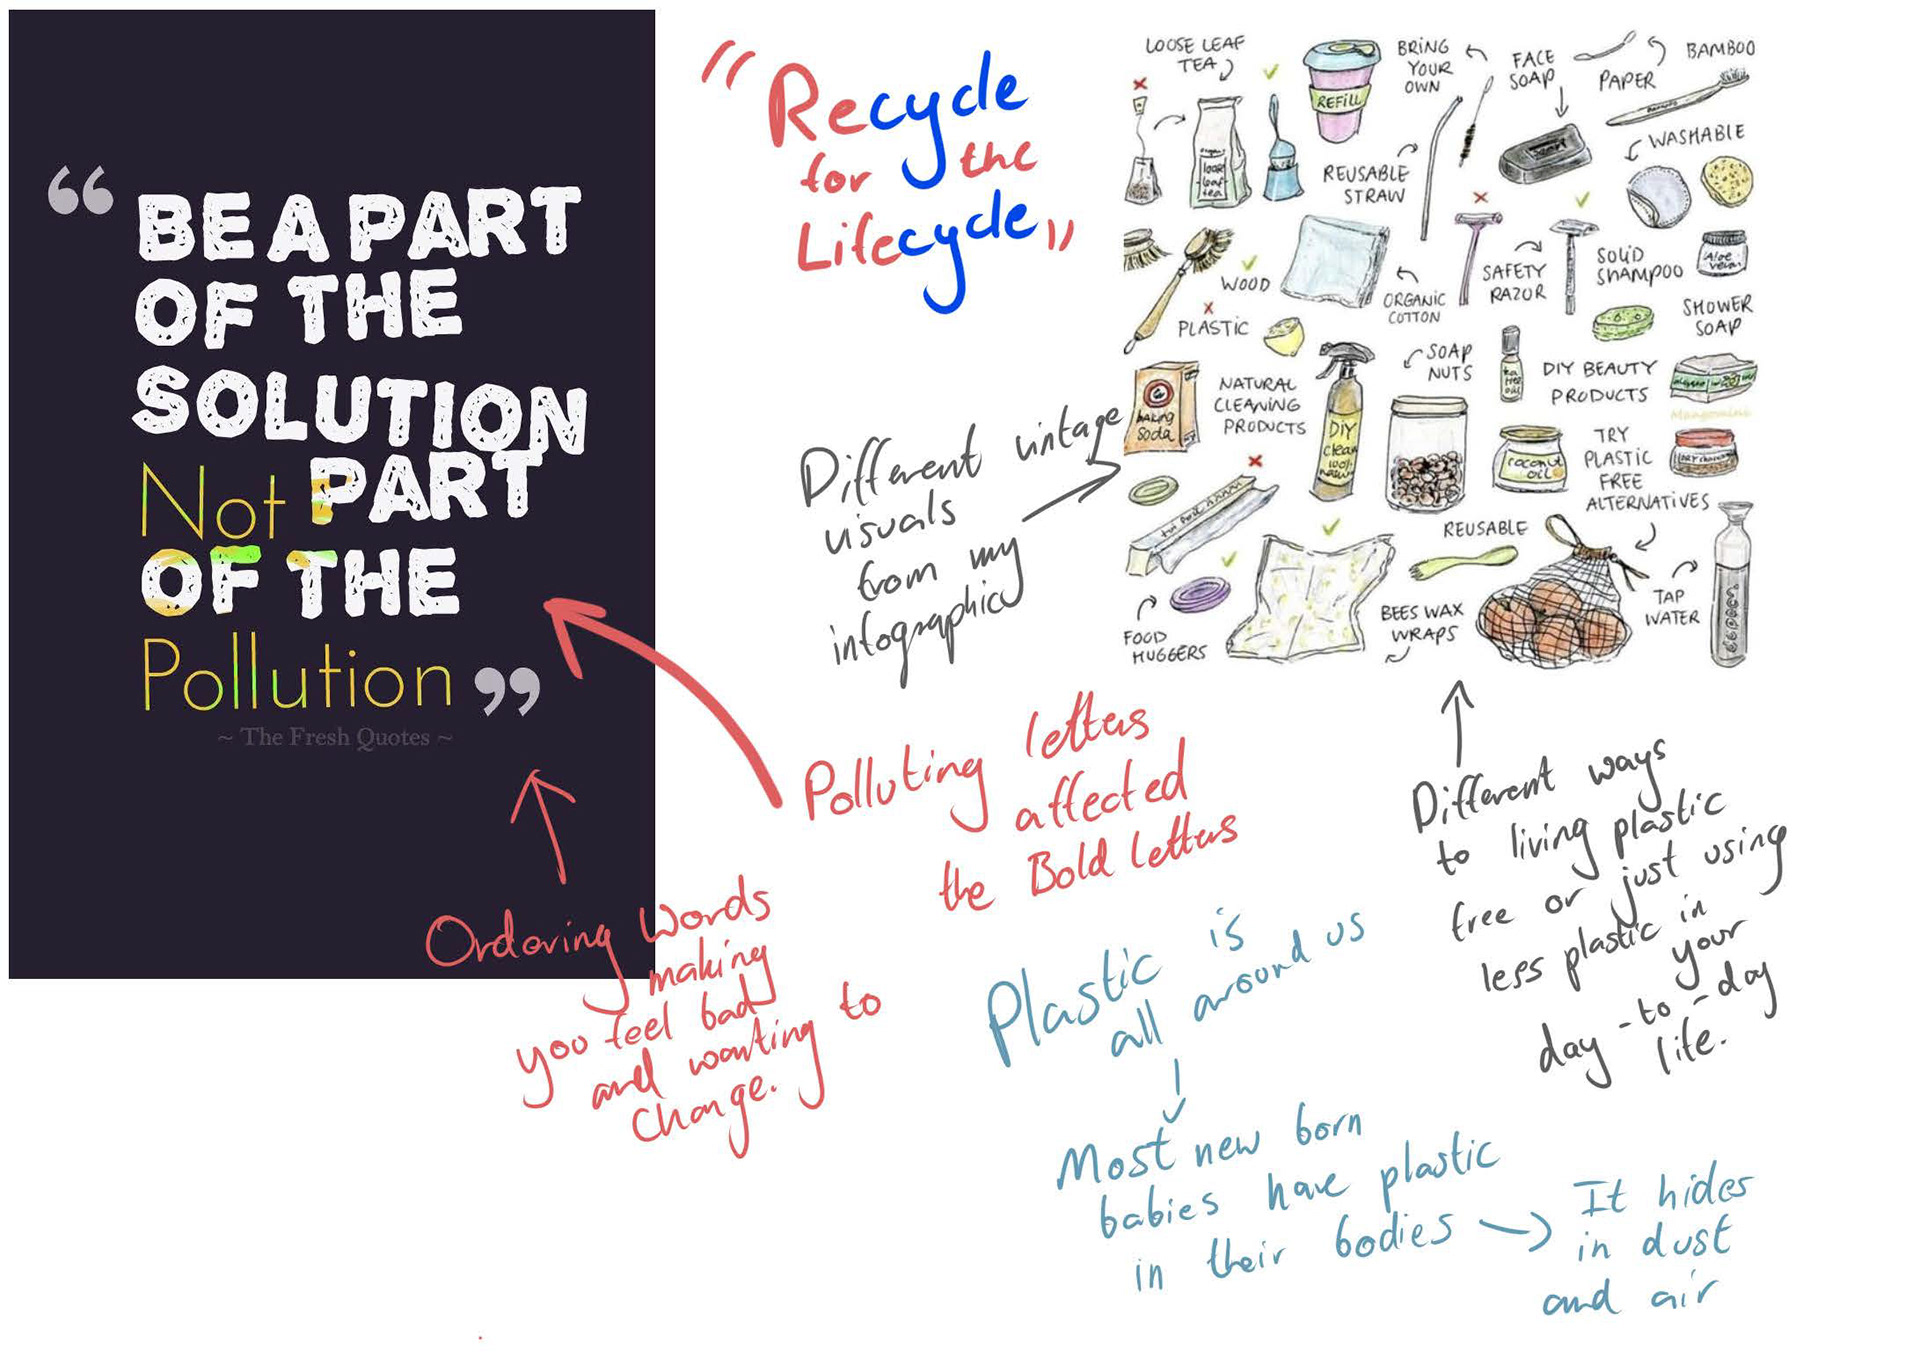 “ BE A PART
OF THE
SOLUTION
Not PART
OF THE
Pollution ”
~ The Fresh Quotes ~
"Recycle
for the
Lifecycle"
LOOSE LEAF
TEA
BRING
YOUR
OWN
REFILL
FACE
SOAP
PAPER
BAMBOO
WASHABLE
REUSABLE
STRAW
organic
loose
leaf
tea
WOOD
PLASTIC
ORGANIC
COTTON
SAFETY
RAZOR
SOLID
SHAMPOO
Aloe
vera
SHOWER
SOAP
baking
Soda
NATURAL
CLEANING
PRODUCTS
DIY
clean
100%
SOAP
NUTS
tea
tree
oil
DIY BEAUTY
PRODUCTS
coconut
OIL
TRY
PLASTIC
FREE
ALTERNATIVES
REUSABLE
FOOD
HUGGERS
BEES WAX
WRAPS
TAP
WATER
Different vintage
visuals
from my
infographic
Polluting letters
affected
the Bold letters
Ordering Words
making
you feel bad
and wanting to
change.
Different ways
to living plastic
free or just using
less plastic in
your
day-to-day
life.
Plastic is
all around us
Most new born
babies have plastic
in their bodies
It hides
in dust
and air